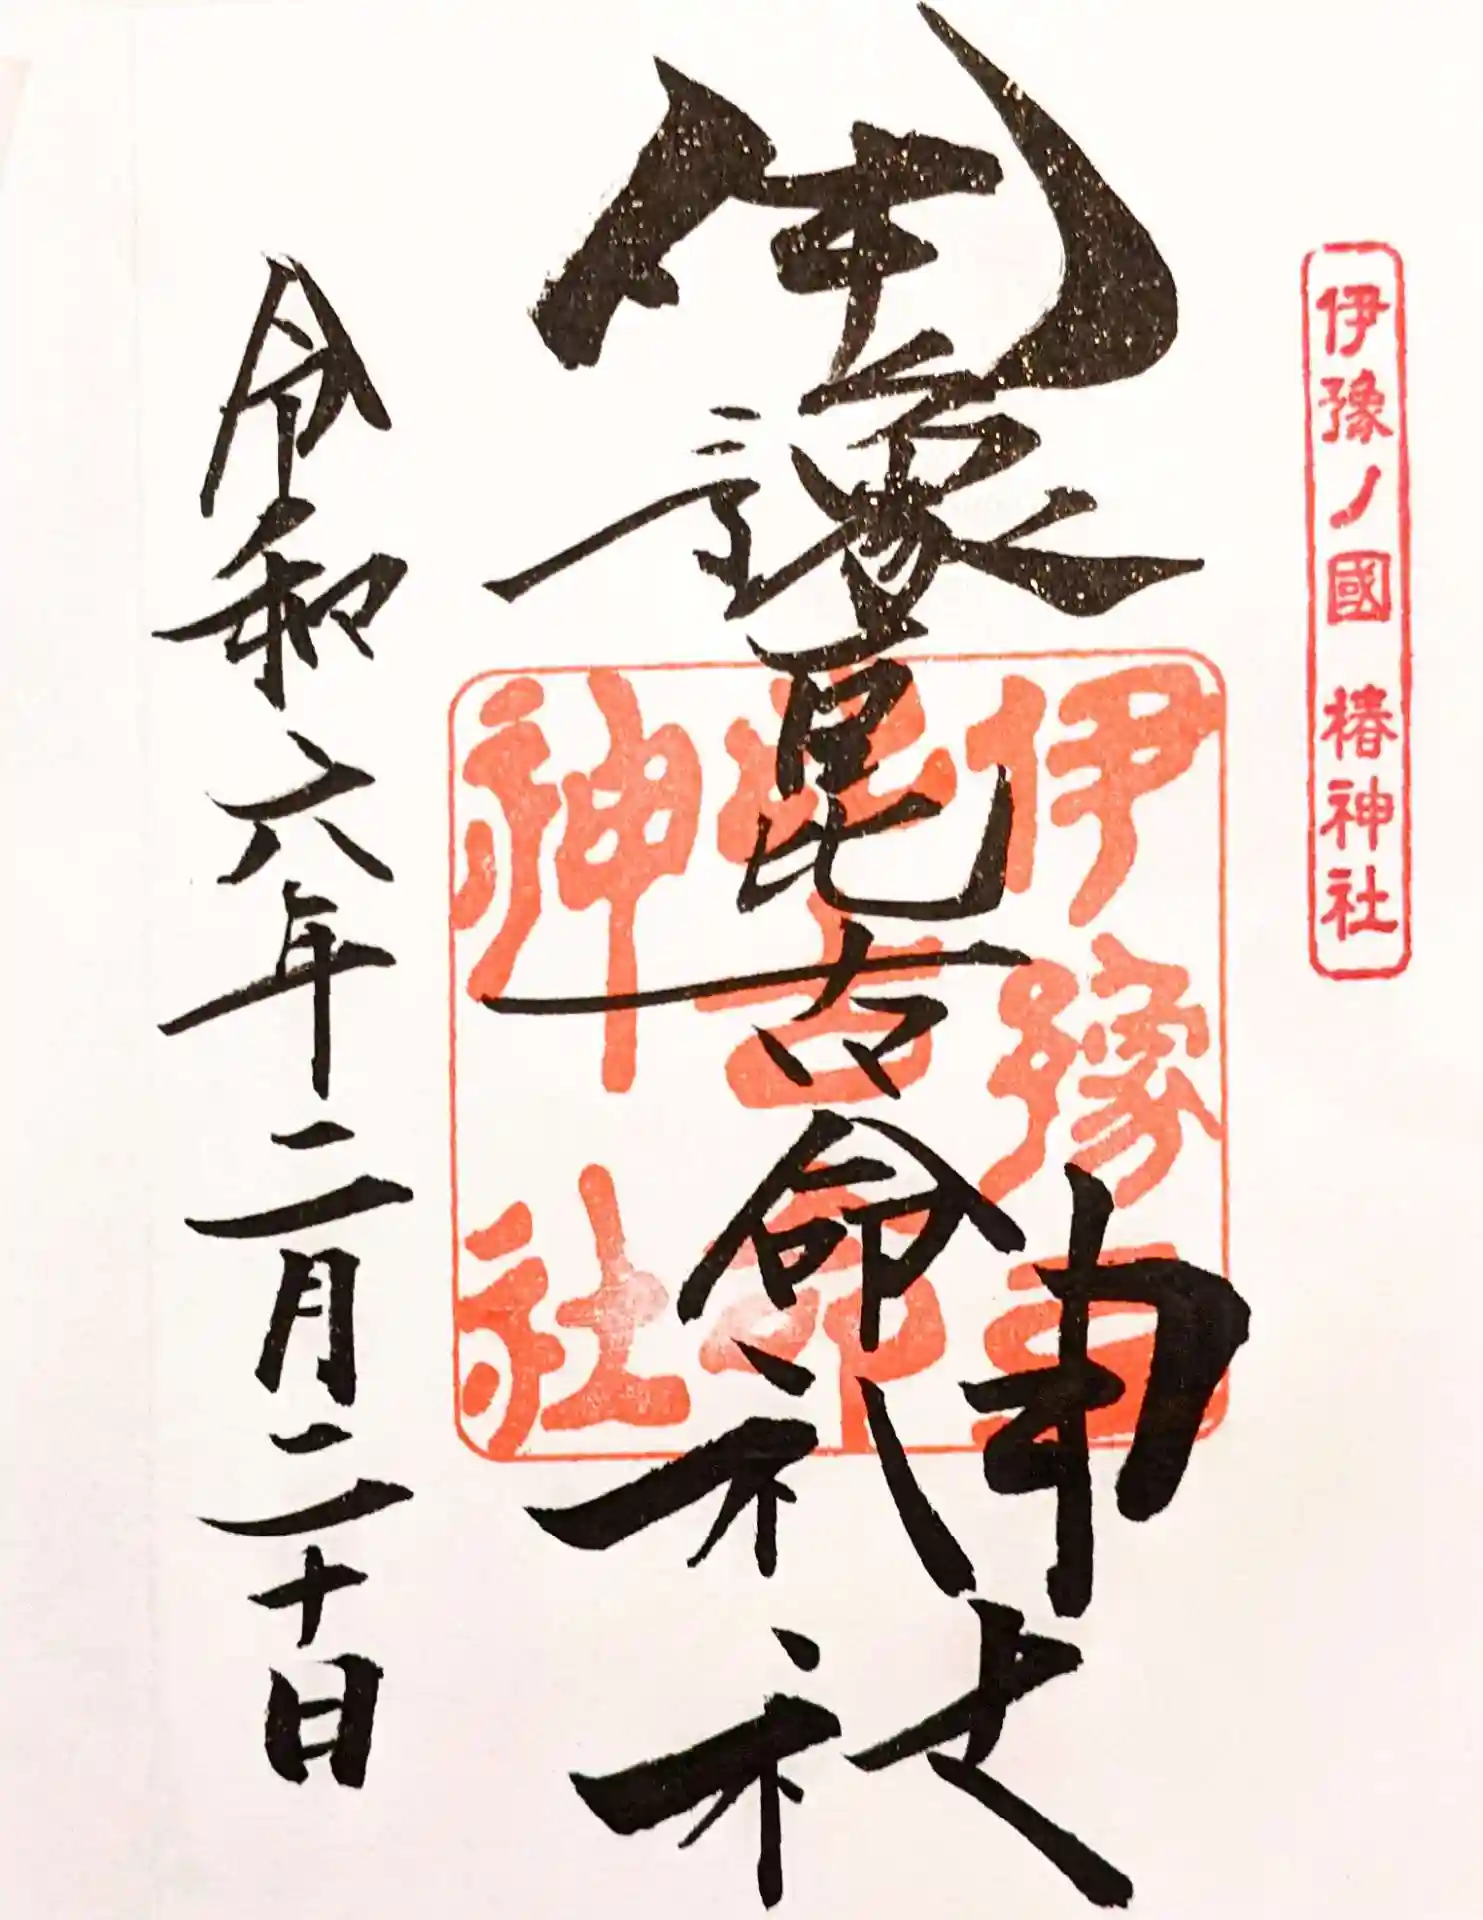 伊豫ノ國 椿神社
伊豫豆比古命神社
伊豫豆
比古命
神社
令和六年二月二十日